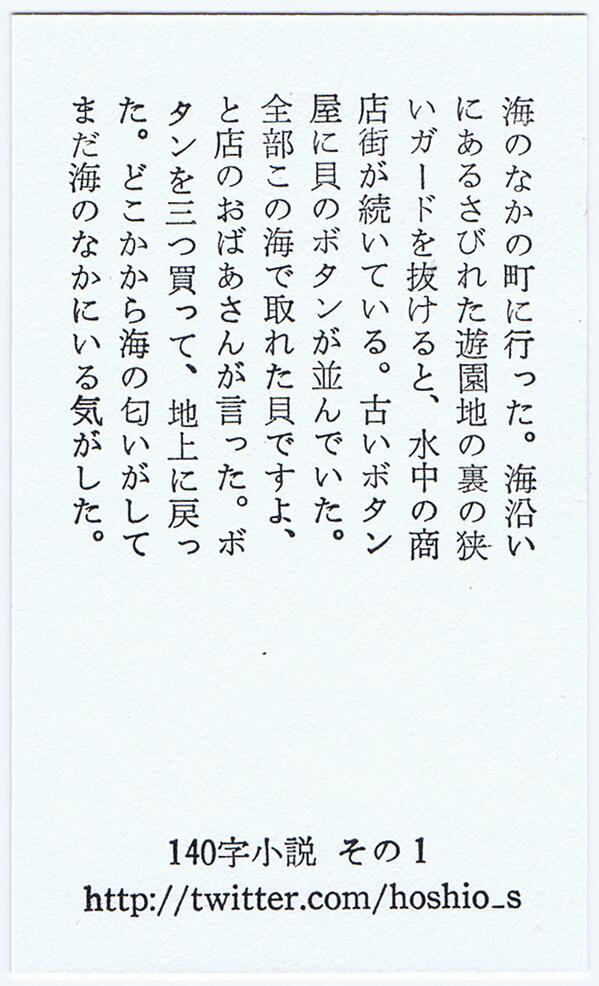 海のなかの町に行った。海沿い
にあるさびれた遊園地の裏の狭
いガードを抜けると、水中の商
店街が続いている。古いボタン
屋に貝のボタンが並んでいた。
全部この海で取れた貝ですよ、
と店のおばあさんが言った。ボ
タンを三つ買って、地上に戻っ
た。どこかから海の匂いがして
まだ海のなかにいる気がした。
140字小説 その1
http://twitter.com/hoshio_s